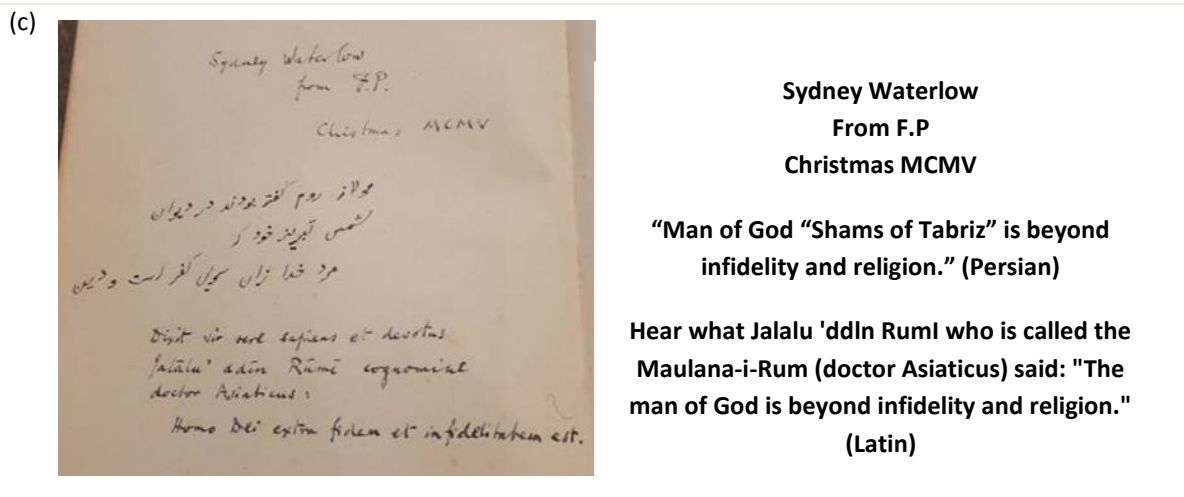 (c)
Sydney Waterlow
from F.P.
Christmas MCMV
مولانا روم گفته بودند در دیوان
شمس تبریز خود که
مرد خدا زان سوی کفر است و دین
Dixit vir vere sapiens et devotus
Jalālu' ddīn Rūmī cognomine
doctor Asiaticus:
Homo Dei extra fidem et infidelitatem est.
Sydney Waterlow
From F.P
Christmas MCMV
“Man of God “Shams of Tabriz” is beyond
infidelity and religion.” (Persian)
Hear what Jalalu 'ddln RumI who is called the
Maulana-i-Rum (doctor Asiaticus) said: "The
man of God is beyond infidelity and religion."
(Latin)